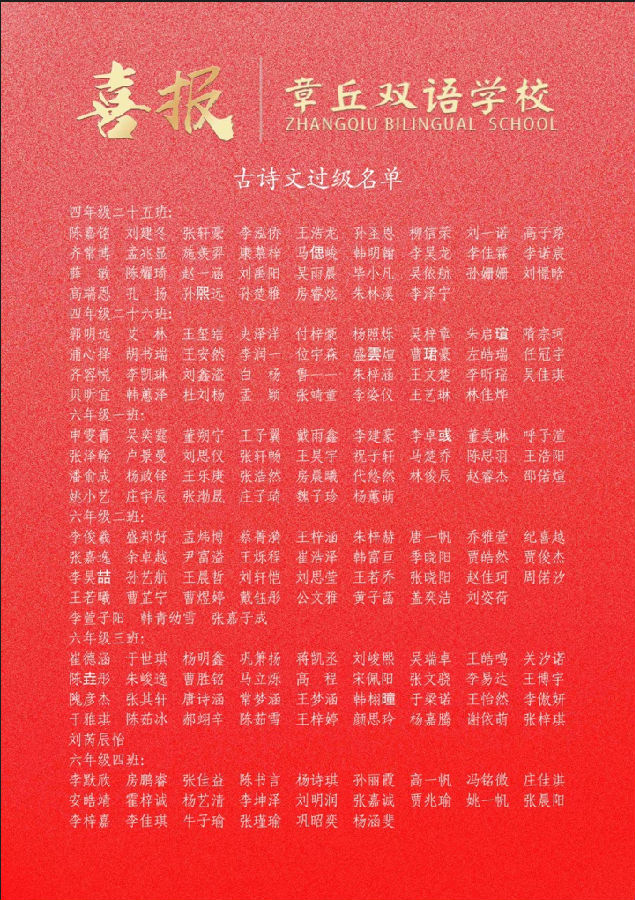 喜报
章丘双语学校
ZHANGQIU BILINGUAL SCHOOL
古诗文过级名单
四年级二十五班:
陈嘉铭 刘建冬 张轩豪 李泓侨 王浩龙 孙圣恩 柳信荣 刘一诺 高子淳
齐常鸿 孟兆显 施羡羿 康慕梓 马偲峻 韩明翰 李昊龙 李佳霖 李诺宸
薛敏 陈耀琦 赵一涵 刘禹阳 吴雨晨 毕小凡 吴依航 孙姗姗 刘憬晗
高瑞恩 孔扬 孙熙远 孙楚雅 房睿炫 朱林溪 李泽宁
四年级二十六班:
郭明远 艾林 王玺岩 史泽洋 付梓豪 杨照烁 吴梓章 朱启瑄 隋宗珂
蒲心择 胡书瑞 王安然 李润一 位宇森 盛雲煊 曹珺豪 左皓瑞 任冠宇
齐容悦 李凯琳 刘鑫溢 白杨 鲁一一 朱梓涵 王文楚 李昕瑶 吴佳琪
贝昕宜 韩蕙泽 杜刘杨 孟颖 张靖童 李姿仪 王艺琳 林佳烨
六年级一班:
申雯菁 吴奕霆 董朔宁 王子翼 戴雨鑫 李建豪 李卓彧 董美琳 呼子渲
张泽翰 卢景曼 刘思仪 张轩畅 王昊宇 祝子轩 马楚乔 陈思羽 王浩阳
潘俞成 杨政铎 王乐庚 张浩然 房晨曦 代悠然 林俊辰 赵睿杰 邵偌煊
姚小艺 庄宇辰 张渤晟 庄子琦 魏子珍 杨蕙萌
六年级二班:
李俊羲 盛郑好 孟炜博 蔡菁漪 王梓涵 朱梓赫 唐一帆 乔雅萱 纪喜越
张嘉逸 余卓越 尹富溢 王烁程 崔浩泽 韩富巨 季晓阳 贾皓然 贾俊杰
李昊喆 孙艺航 王晨哲 刘轩恺 刘思莹 王若乔 张晓阳 赵佳珂 周偌汐
王若曦 曹芷宁 曹煜婷 戴钰彤 公文雅 黄子菡 盖奕洁 刘姿荷
李萱子阳 韩青幼雪 张嘉子成
六年级三班:
崔德涵 于世琪 杨明鑫 巩箫扬 蒋凯丞 刘峻熙 吴瑞卓 王皓鸣 关汐诺
陈垚彤 朱峻逸 曹胜铭 马立烁 高程 宋佩阳 张文骁 李易达 王博宇
隗彦杰 张其轩 唐诗涵 常梦涵 王梦涵 韩栩曈 于梁诺 王怡然 李傲妍
于雅琪 陈茹冰 郝翊辛 陈茹雪 王梓婷 颜思玲 杨嘉腾 谢依萌 张梓琪
刘芮辰怡
六年级四班:
李默欣 房鹏睿 张佳益 陈书言 杨诗琪 孙丽霞 高一帆 冯铭微 庄佳淇
安皓靖 霍梓诚 杨艺清 李坤泽 刘明润 张嘉诚 贾兆瑜 姚一帆 张晨阳
李梓嘉 李佳琪 牛子瑜 张瑾瑜 巩昭奕 杨涵斐